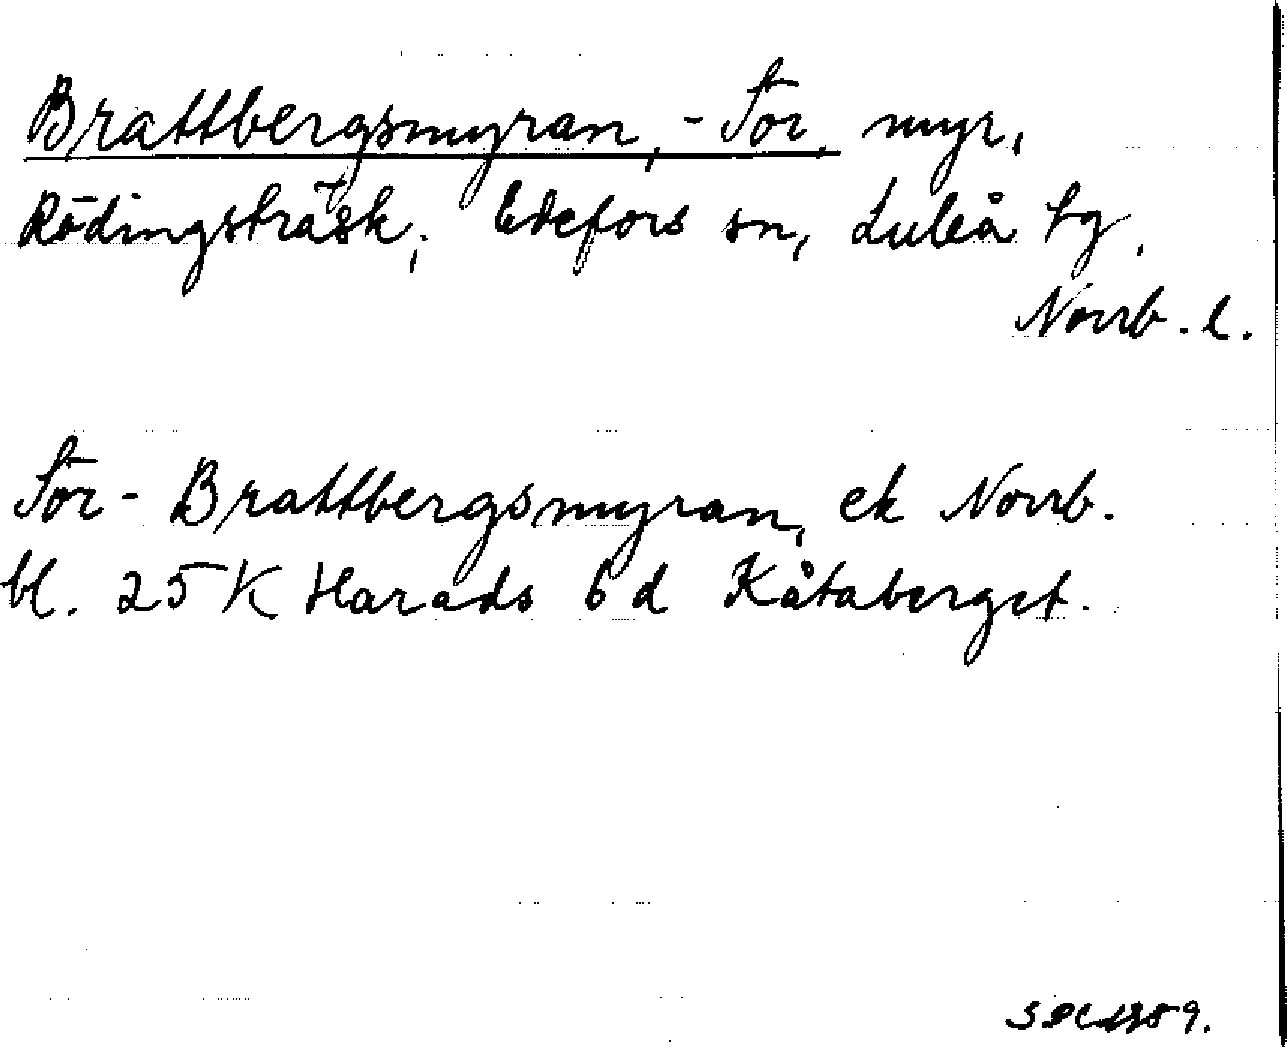 Brattbergsmyran, -Sör, myr,
Rödingsträsk, Edefors sn, Luleå tg,
Norrb. l.
Sör-Brattbergsmyran, ek Norrb.
bl. 25 K Harads 6 d Kåtaberget.
1989.